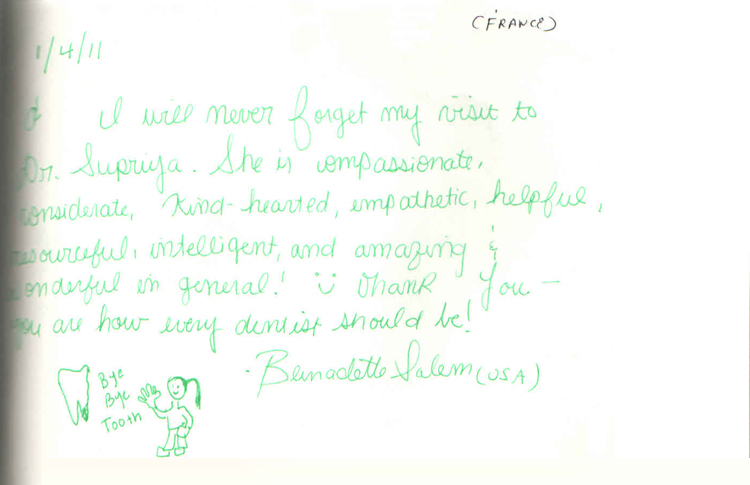 (FRANCE)
1/4/11
I will never forget my visit to
Dr. Supriya. She is compassionate,
considerate, kind-hearted, empathetic, helpful,
resourceful, intelligent, and amazing &
wonderful in general! Thank you —
you are how every dentist should be!
- Bernadette Salem (USA)
Bye
Bye
Tooth